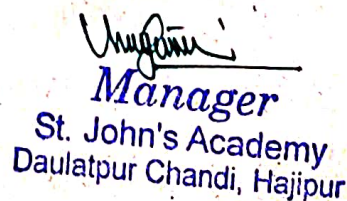 Manager
St. John's Academy
Daulatpur Chandi, Hajipur